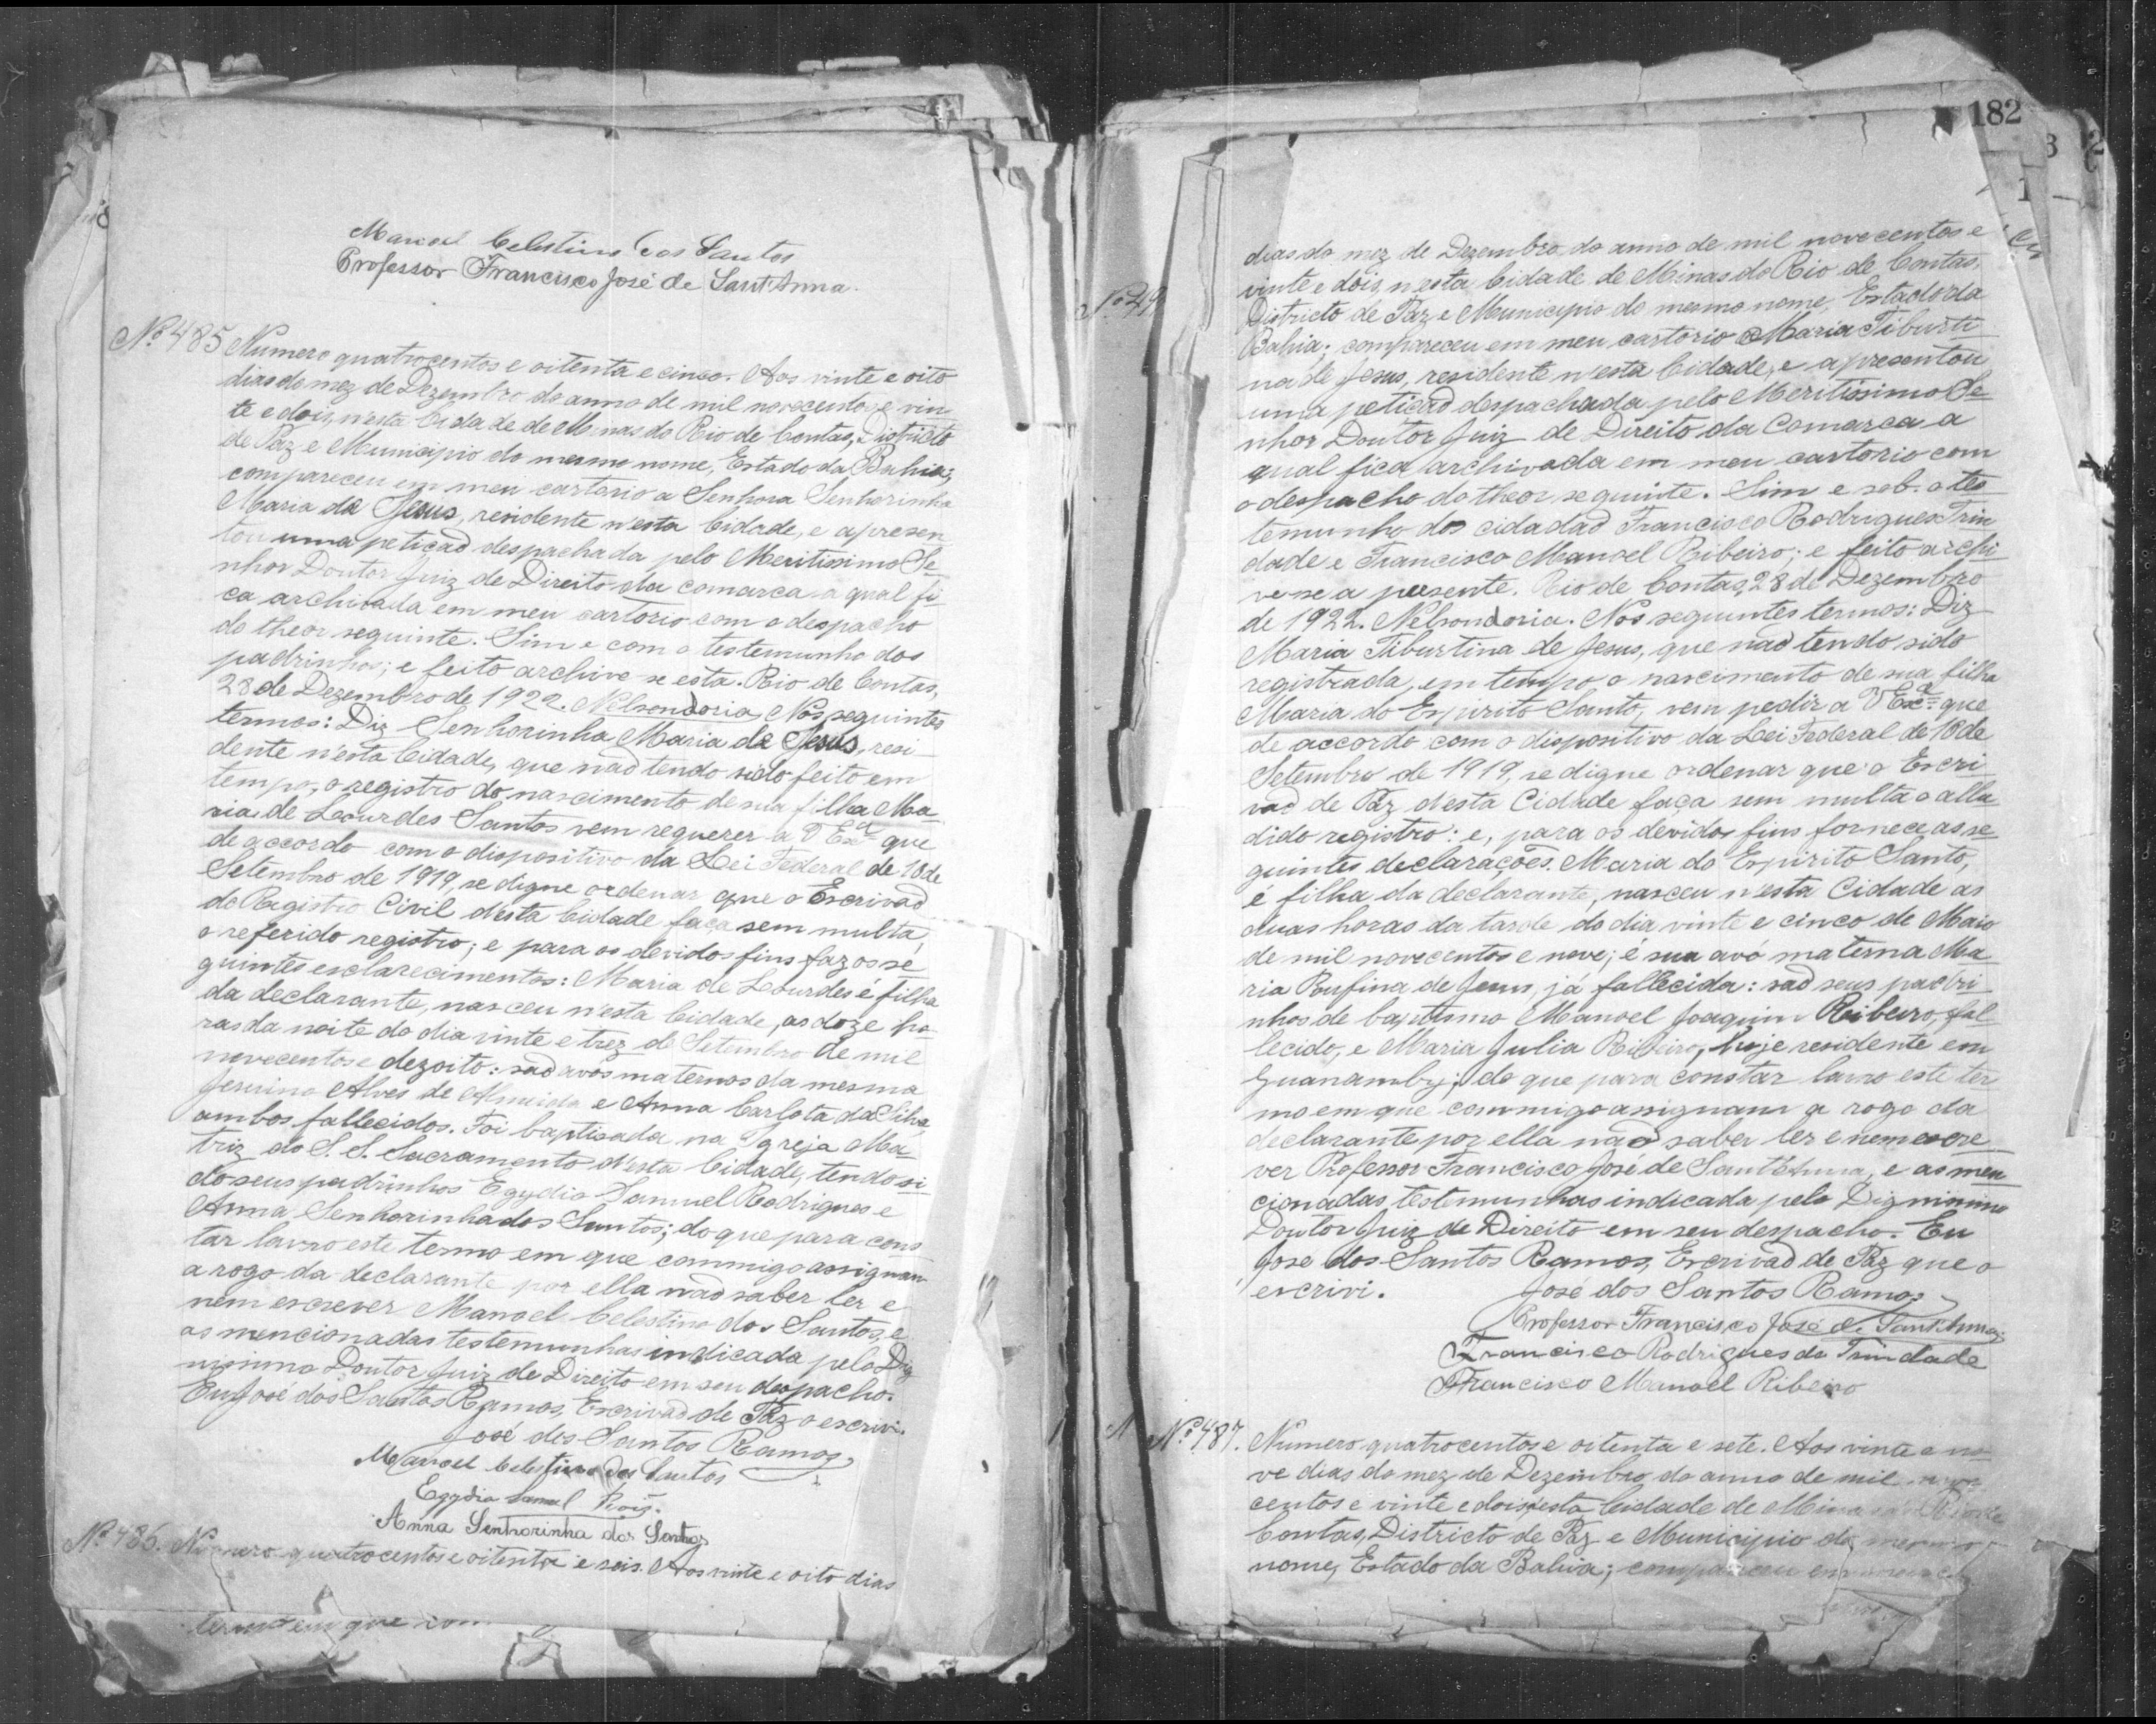 Manoel Celestino dos Santos
Professor Francisco José de Sant'Anna.
Nº 485 Numero quatrocentos e oitenta e cinco. Aos vinte e oito
dias do mez de Dezembro do anno de mil novecentos e vin
te e dois, n'esta Cidade de Minas do Rio de Contas, Districto
de Paz e Municipio do mesmo nome, Estado da Bahia;
compareceu em meu cartorio a Senhora Senhorinha
Maria de Jesus, residente n'esta Cidade, e apresen
tou uma petição despachada pelo Meritissimo Se
nhor Doutor Juiz de Direito da comarca a qual fi
ca archivada em meu cartorio com o despacho
do theor seguinte. Sim e com o testemunho dos
padrinhos; e feito archive-se esta. Rio de Contas,
28 de Dezembro de 1922. Nelsondoria. Nos seguintes
termos: Diz Senhorinha Maria de Jesus, resi
dente n'esta Cidade, que não tendo sido feito em
tempo, o registro do nascimento de sua filha Ma
ria de Lourdes Santos vem requerer a V Exª que
de accordo com o dispositivo da Lei Federal de 10 de
Setembro de 1919, se digne ordenar que o Escrivão
do Registro Civil d'esta Cidade faça sem multa,
o referido registro; e para os devidos fins faz os se
guintes esclarecimentos: Maria de Lourdes é filha
da declarante, nasceu n'esta Cidade, as doze ho
ras da noite do dia vinte e trez de Setembro de mil
novecentos e dezoito: são avós maternos da mesma
Jesuino Alves de Almeida e Anna Carlota da Silva,
ambos fallecidos. Foi baptisada na Igreja Ma
triz do S. S. Sacramento d'esta Cidade, tendo si
do seus padrinhos Egydio Samuel Rodrigues e
Anna Senhorinha dos Santos; do que para cons
tar lavro este termo em que commigo assignam
a rogo da declarante por ella não saber ler e
nem escrever Manoel Celestino dos Santos, e
as mencionadas testemunhas indicada pelo Dig
nissimo Doutor Juiz de Direito em seu despacho.
Eu José dos Santos Ramos, Escrivão de Paz o escrivi.
José dos Santos Ramos
Manoel Celestino dos Santos
Egydio Samuel Roiz.
Anna Senhorinha dos Santos
Nº 486. Numero quatrocentos e oitenta e seis. Aos vinte e oito dias
termo em que com
182
Nº 49
dias do mez de Dezembro do anno de mil novecentos e
vinte e dois, n'esta Cidade de Minas do Rio de Contas,
Districto de Paz e Municipio do mesmo nome, Estado da
Bahia; compareceu em meu cartorio Maria Tiburti
na de Jesus, residente n'esta Cidade, e apresentou
uma petição despachada pelo Meritissimo Se
nhor Doutor Juiz de Direito da Comarca a
qual fica archivada em meu cartorio com
o despacho do theor seguinte. Sim e sob. o tes
temunho dos cidadão Francisco Rodrigues Trin
dade e Francisco Manoel Ribeiro; e feito archi
ve-se a presente. Rio de Contas, 28 de Dezembro
de 1922. Nelsondoria. Nos seguintes termos: Diz
Maria Tiburtina de Jesus, que não tendo sido
registrada, em tempo o nascimento de sua filha
Maria do Espirito Santo, vem pedir a V Exª que
de accordo com o dispositivo da Lei Federal de 10 de
Setembro de 1919, se digne ordenar que o Escri
vão de Paz d'esta Cidade faça sem multa o allu
dido registro: e, para os devidos fins fornece as se
guintes declarações. Maria do Espirito Santo,
é filha da declarante, nasceu n'esta Cidade as
duas horas da tarde do dia vinte e cinco de Maio
de mil novecentos e nove; é sua avó materna Ma
ria Rufina de Jesus, já fallecida: são seus padri
nhos de baptismo Manoel Joaquim Ribeiro, fal
lecido, e Maria Julia Ribeiro, hoje residente em
Guanamby; do que para constar lavro este ter
mo em que commigo assignam a rogo da
declarante por ella não saber ler e nem escre
ver Professor Francisco José de Sant'Anna, e as men
cionadas testemunhas indicada pelo Dignissimo
Doutor Juiz de Direito em seu despacho. Eu
José dos Santos Ramos, Escrivão de Paz que o
escrivi. José dos Santos Ramos
Professor Francisco José de Sant'Anna
Francisco Rodrigues da Trindade
Francisco Manoel Ribeiro
Nº 487. Numero quatrocentos e oitenta e sete. Aos vinte e no
ve dias do mez de Dezembro do anno de mil nove
centos e vinte e dois, n'esta Cidade de Minas do Rio de
Contas, Districto de Paz e Municipio do mesmo
nome, Estado da Bahia; compareceu em meu